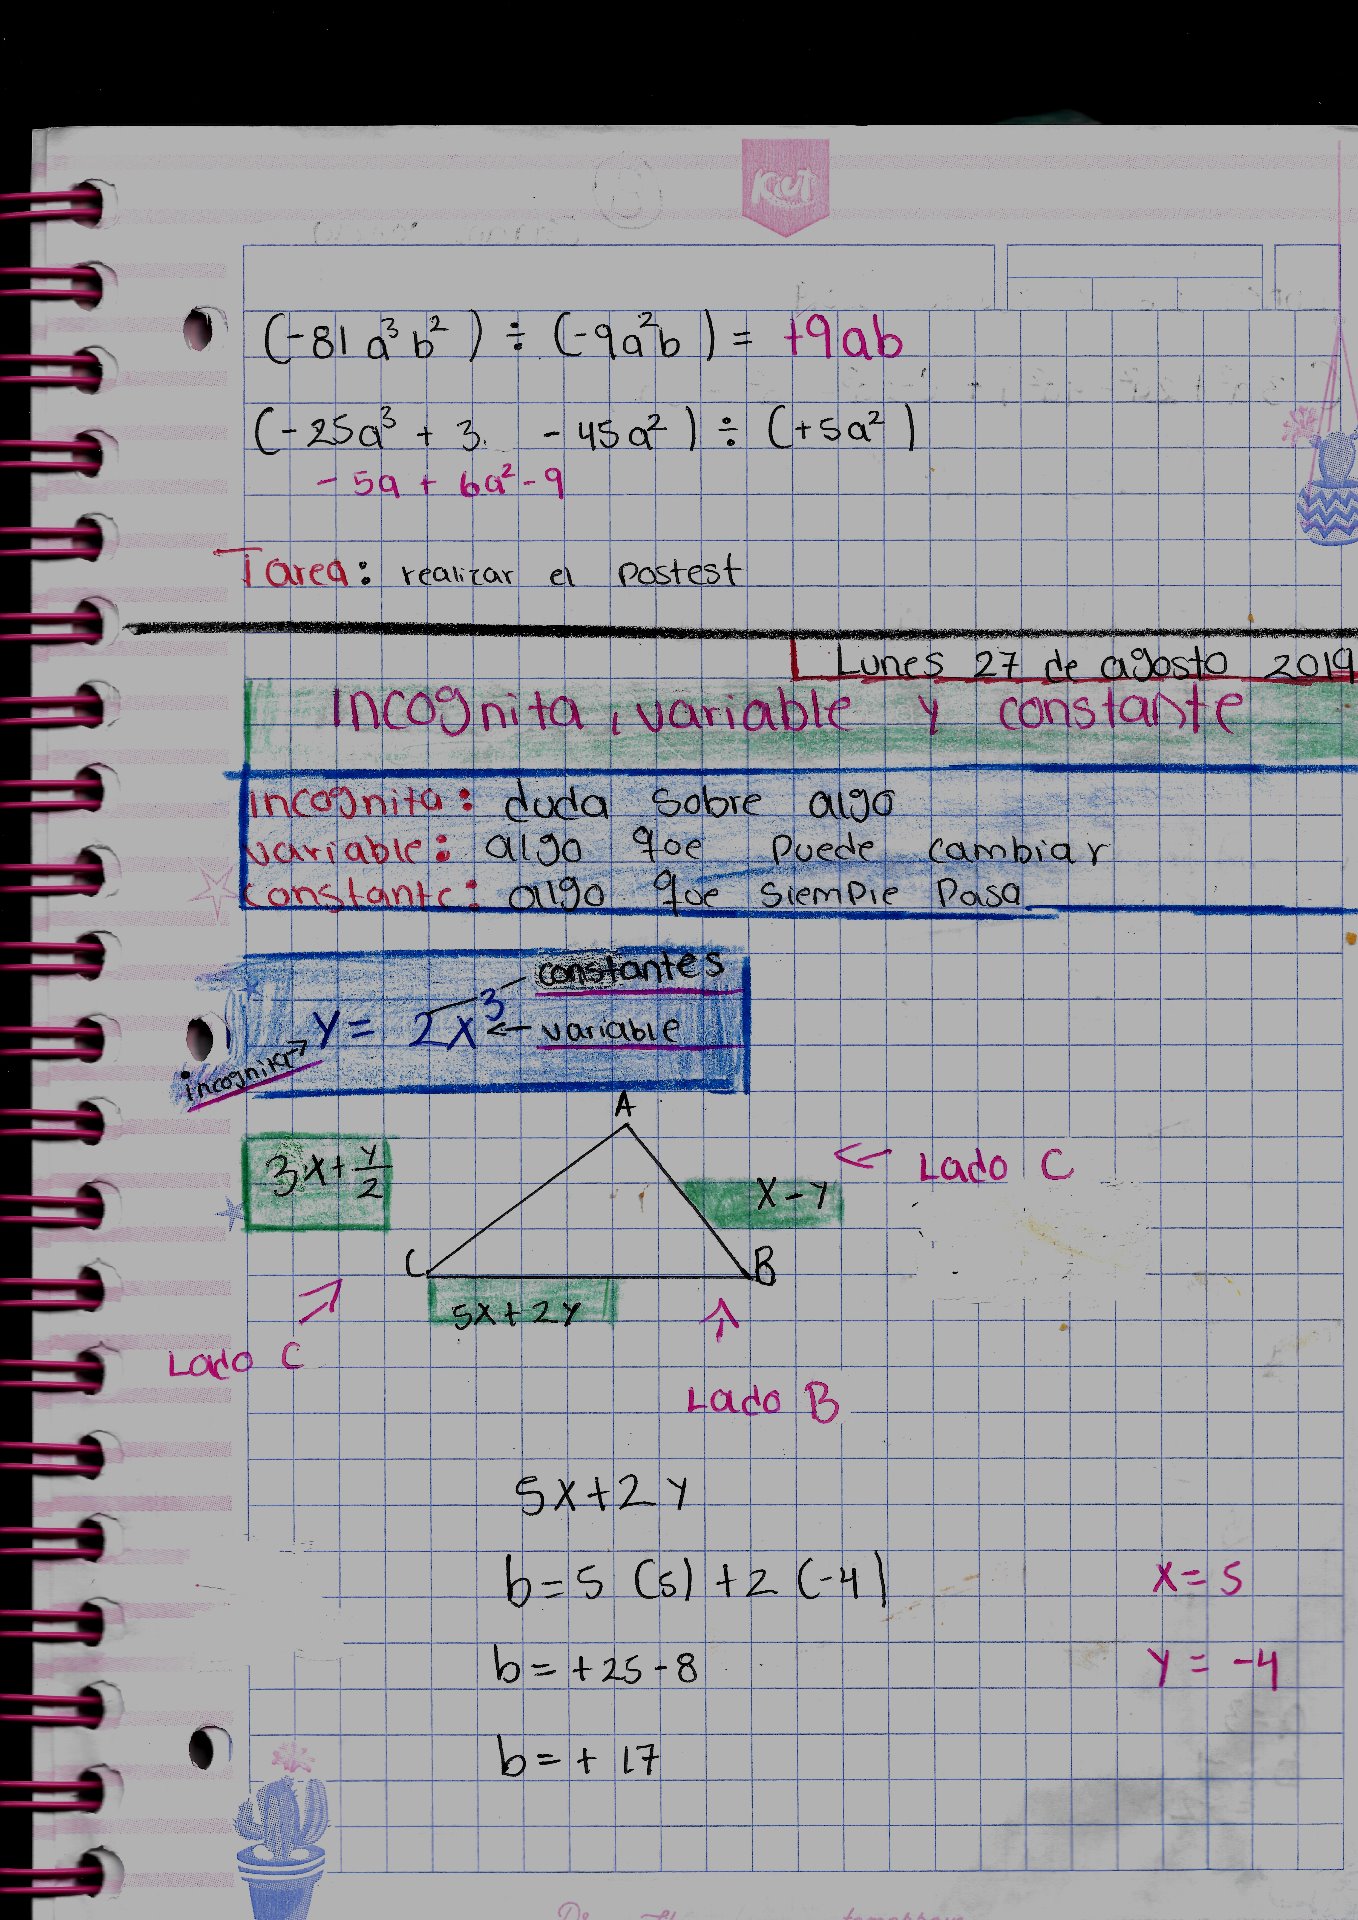 Kiut
(-81a³b²) ÷ (-9a²b) = +9ab
(-25a³ + 3. - 45a²) ÷ (+5a²)
- 5a + 6a² - 9
Tarea: realizar el postest
Lunes 27 de agosto 2019
Incognita, variable y constante
incognita: duda sobre algo
variable: algo que puede cambiar
constante: algo que siempre pasa
constantes
y = 2x³ ← variable
incognita →
A
3x + y/2
x - y
← Lado C
C
B
5x + 2y
Lado C
Lado B
5x + 2y
b = 5 (5) + 2 (-4)
x = 5
b = + 25 - 8
y = -4
b = + 17